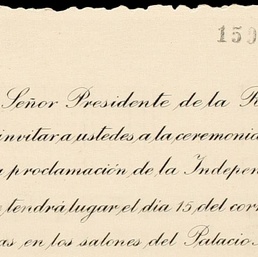 159
Señor Presidente de la R
invitar a ustedes a la ceremonia
proclamación de la Indepen
tendrá lugar el dia 15 del corr
as en los salones del Palacio